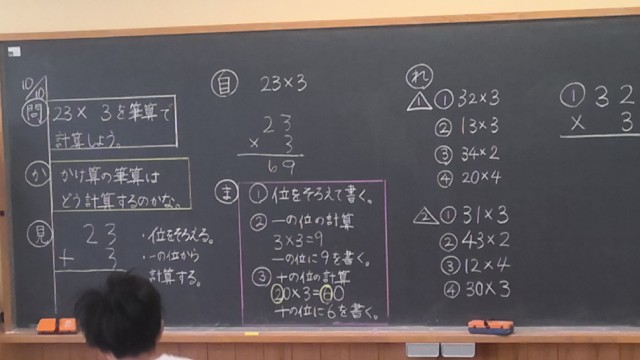 10/10
問
23×3を筆算で
計算しよう。
か
かけ算の筆算は
どう計算するのかな。
見
23
+ 3
・位をそろえる。
・一の位から
計算する。
自
23×3
23
× 3
69
ま
①位をそろえて書く。
②一の位の計算
3×3=9
一の位に9を書く。
③十の位の計算
20×3=60
十の位に6を書く。
れ
△1 ①32×3
②13×3
③34×2
④20×4
△2 ①31×3
②43×2
③12×4
④30×3
①32
× 3